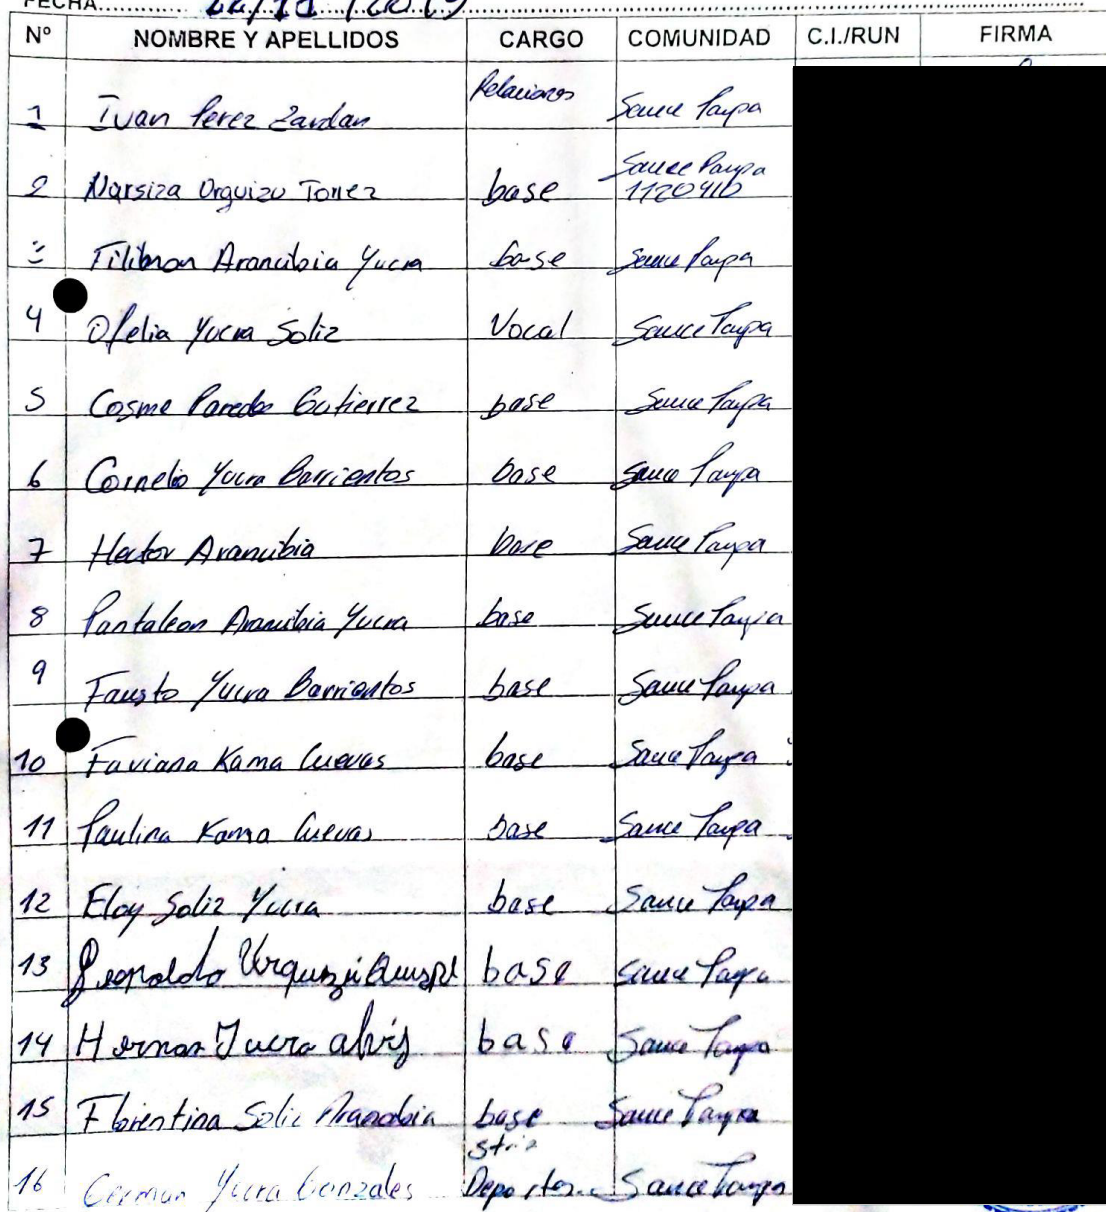 FECHA
Nº NOMBRE Y APELLIDOS CARGO COMUNIDAD C.I./RUN FIRMA
1 Ivan Perez Zardan Relaciones Sauce Pampa
2 Narsiza Orquizu Torrez base Sauce Pampa
1120410
3 Filibron Arancibia Yucra base Sauce Pampa
4 Ofelia Yucra Soliz Vocal Sauce Pampa
5 Cosme Paredes Gutierrez base Sauce Pampa
6 Cornelio Yucra Barrientos base Sauce Pampa
7 Hector Arancibia base Sauce Pampa
8 Pantaleon Arancibia Yucra base Sauce Pampa
9 Fausto Yucra Barrientos base Sauce Pampa
10 Faviana Kama Cuevas base Sauce Pampa
11 Paulina Kama Cuevas base Sauce Pampa
12 Eloy Soliz Yucra base Sauce Pampa
13 Leopoldo Urquizu Quispe base Sauce Pampa
14 Hernan Yucra alvis base Sauce Pampa
15 Florentina Soliz Arancibia base Sauce Pampa
16 German Yucra Gonzales Sauce Pampa